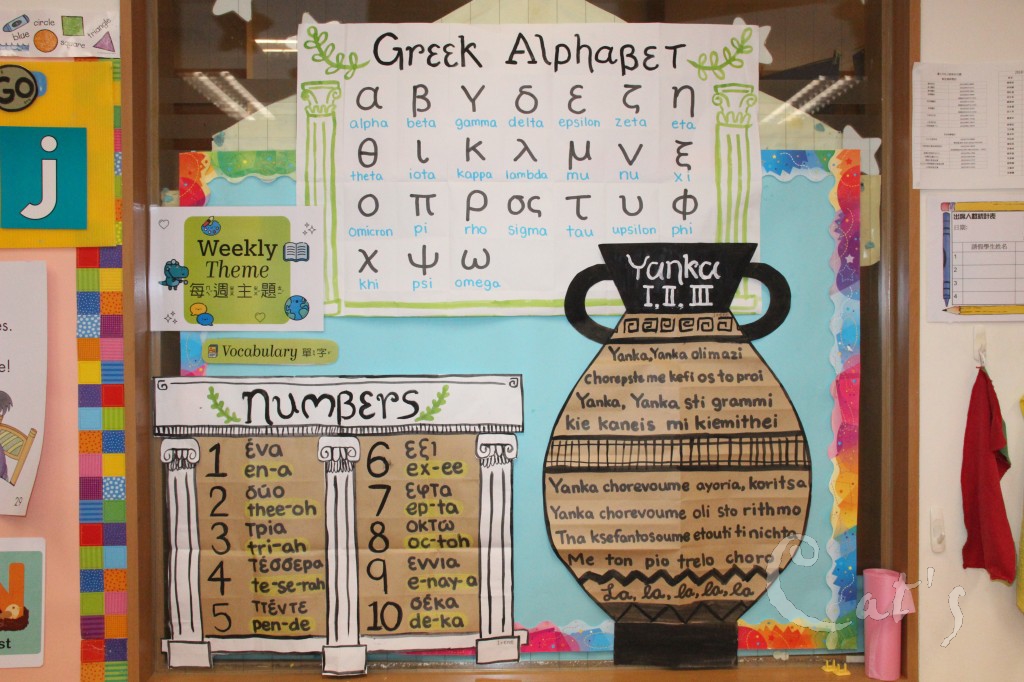 circle
square
triangle
GO
j
Greek Alphabet
α β γ δ ε ζ η
alpha beta gamma delta epsilon zeta eta
θ ι κ λ μ ν ξ
theta iota kappa lambda mu nu xi
ο π ρ σς τ υ φ
omicron pi rho sigma tau upsilon phi
χ ψ ω
khi psi omega
Weekly
Theme
每週主題
Vocabulary 單字
Numbers
1 ένα
en-a
2 δύο
thee-oh
3 τρία
tri-ah
4 τέσσερα
te-se-rah
5 πέντε
pen-de
6 εξι
ex-ee
7 εφτα
ep-ta
8 οκτω
oc-toh
9 εννια
e-nay-a
10 δέκα
de-ka
Yanka
I, II, III
Yanka, Yanka olimazi
chorepste me kefi os to proi
Yanka, Yanka sti grammi
kie kaneis mi kiemithei
Yanka chorevoume ayoria, koritsa
Yanka chorevoume oli sto rithmo
Tha ksefantosoume etouti tinichta
Me ton pio trelo choro
La, la, la, la, la
es.
e!
29
st
日期:
請假學生姓名
1
2
3
4
Cat's